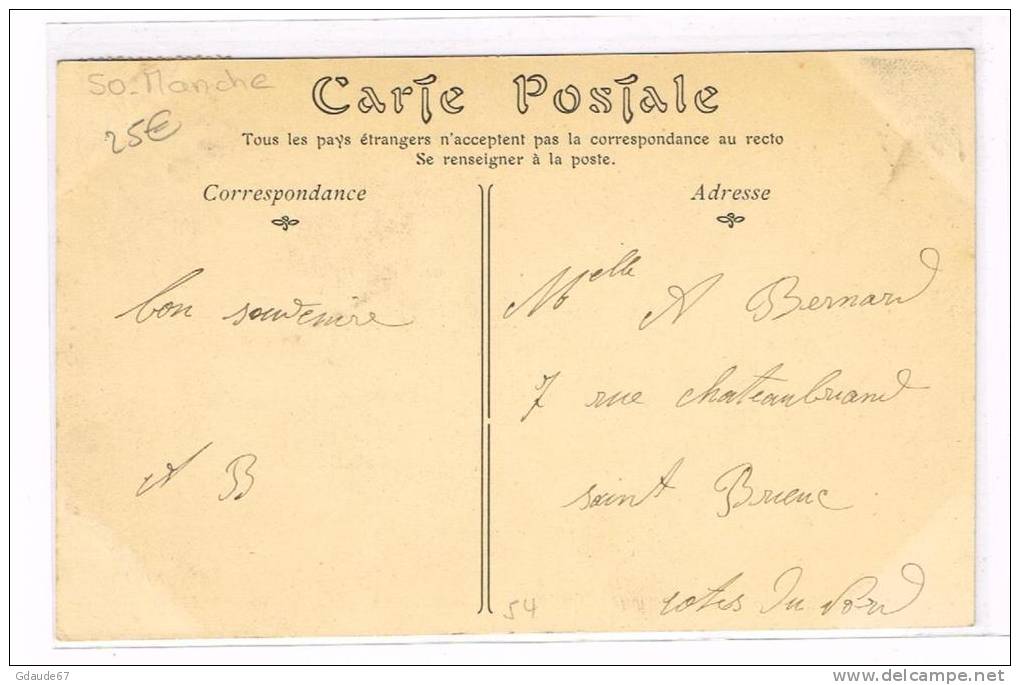 50-Manche
25€
Carte Postale
Tous les pays étrangers n'acceptent pas la correspondance au recto
Se renseigner à la poste.
Correspondance
bon souvenire
A B
Adresse
Melle A Bernard
7 rue chateaubriand
saint Brieuc
cotes du Nord
54
Gdaude67
www.delcampe.net